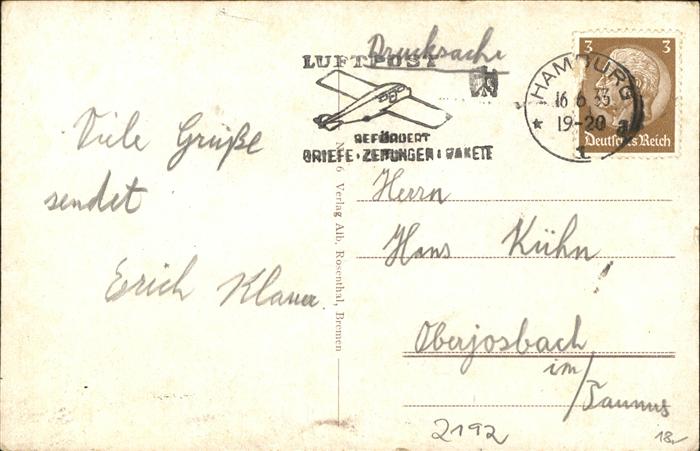 Drucksache
LUFTPOST
BEFÖRDERT
BRIEFE · ZEITUNGEN · PAKETE
HAMBURG
16.6.33
19-20
1
3 3
Deutsches Reich
Viele Grüße
sendet
Erich Klauer
6 Verlag Alb. Rosenthal, Bremen
Herrn
Hans Kühn
Oberjosbach
im/
Taunus
2192
18,-